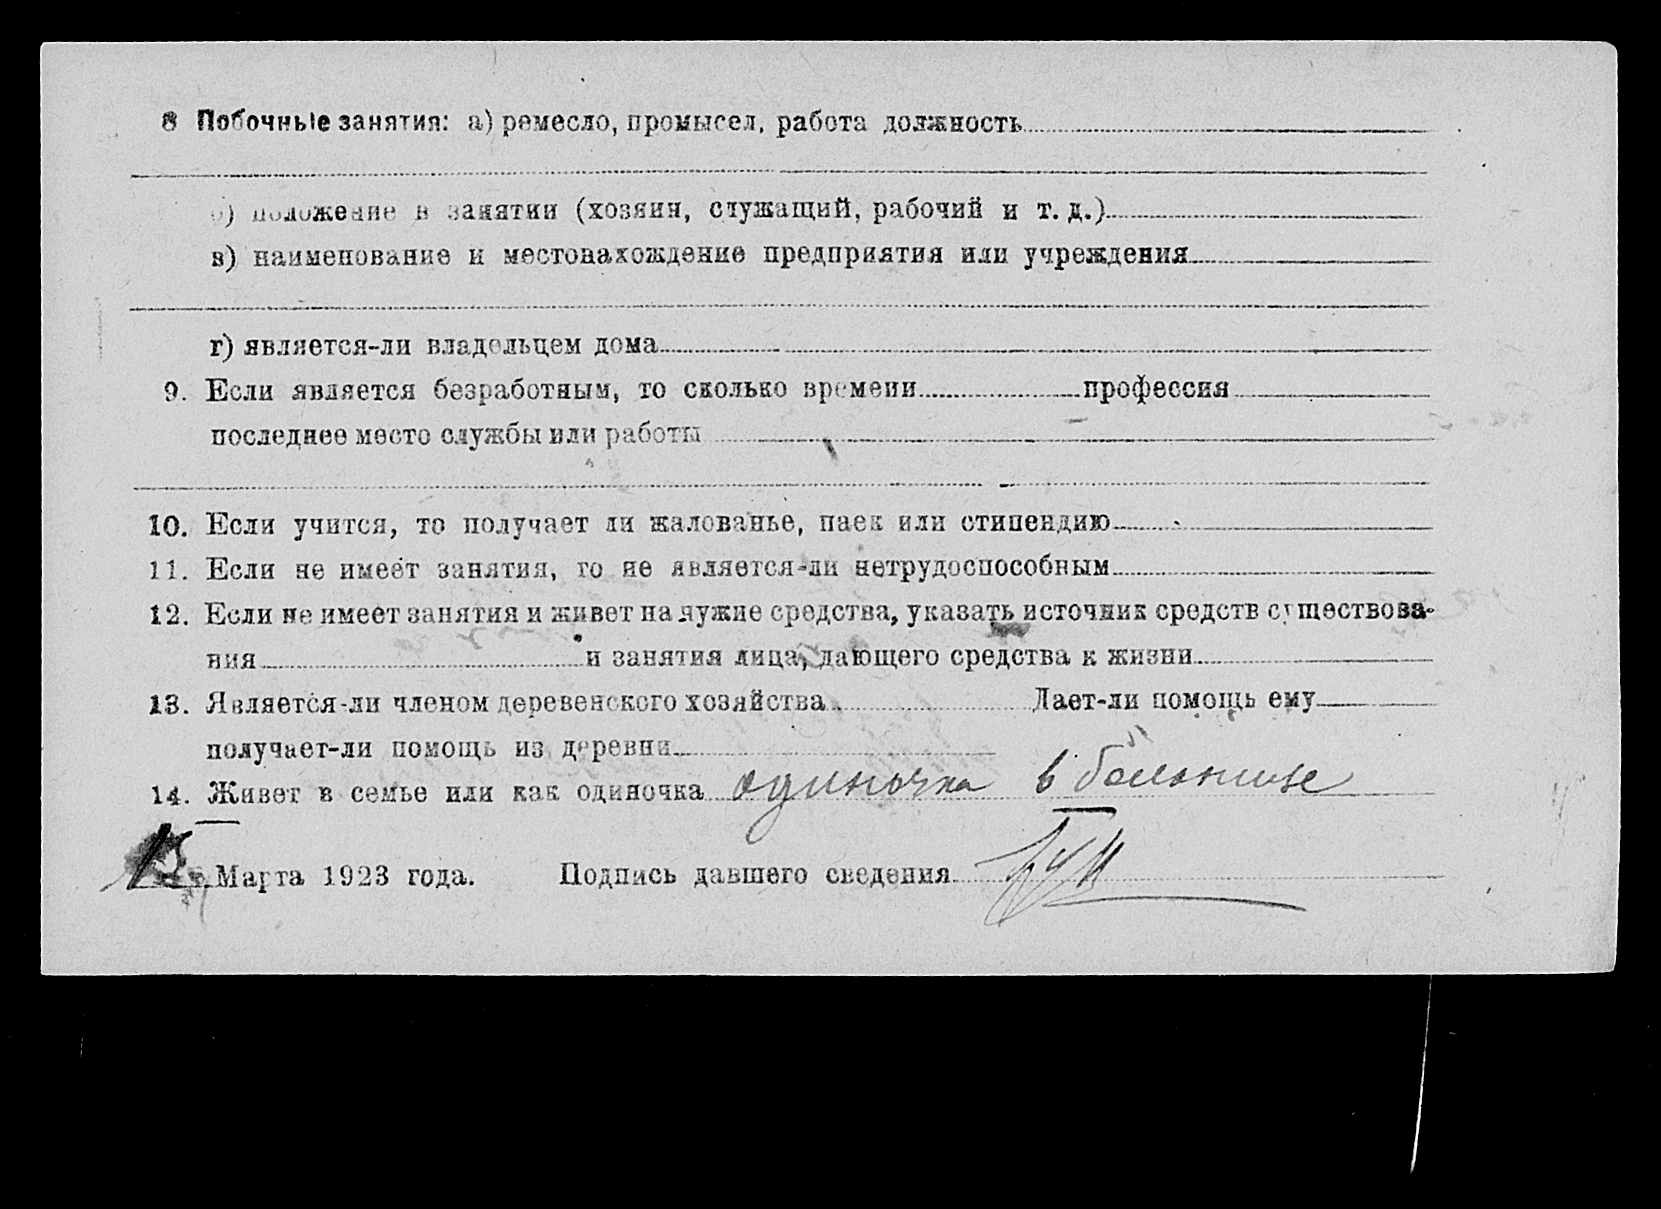 8 Побочные занятия: а) ремесло, промысел, работа должность
б) положение в занятии (хозяин, служащий, рабочий и т. д.)
в) наименование и местонахождение предприятия или учреждения
г) является-ли владельцем дома
9. Если является безработным, то сколько времени профессия
последнее место службы или работы
10. Если учится, то получает ли жалованье, паек или стипендию
11. Если не имеет занятия, то не является-ли нетрудоспособным
12. Если не имеет занятия и живет на чужие средства, указать источник средств существова-
ния и занятия лица, дающего средства к жизни
13. Является-ли членом деревенского хозяйства Дает-ли помощь ему
получает-ли помощь из деревни
14. Живет в семье или как одиночка одиночка в больнице
Марта 1923 года. Подпись давшего сведения